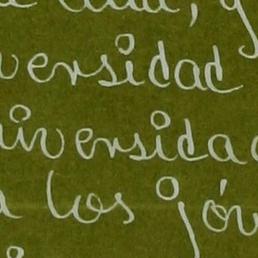 versidad
iversida
a los jóv